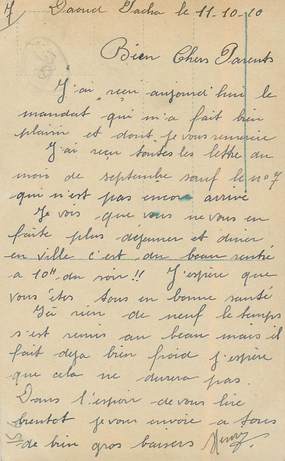 7/ Daoud Pacha le 11-10-10
Bien Chers Parents
J'ai reçu aujourd'hui le
mandat qui m'a fait bien
plaisir et dont je vous remercie
J'ai reçu toutes les lettre du
mois de septembre sauf le n° 7
qui n'est pas encore arrivé
Je vois que vous ne vous en
faite plus dejeuner et diner
en ville c'est du beau rentré
a 10h du soir !! J'espère que
vous êtes tous en bonne santé
J'ai rien de neuf le temps
s'est remis au beau mais il
fait deja bien froid j'espère
que cela ne durera pas.
Dans l'espoir de vous lire
bientot je vous envoie a tous
de bien gros baisers